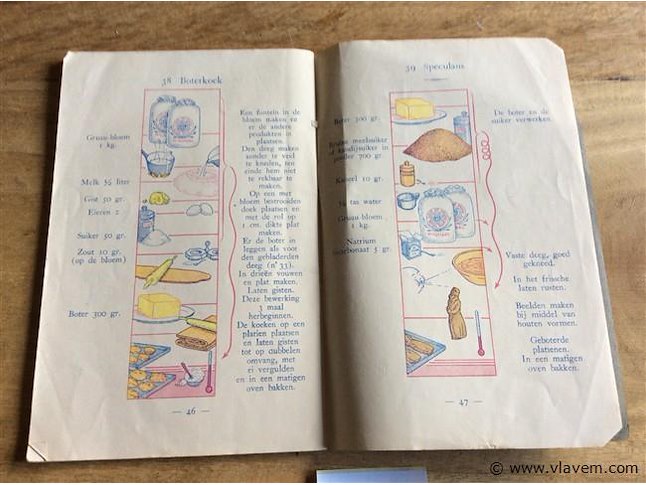 38 Boterkoek
Gruau-bloem
1 kg.
Melk ½ liter
Gist 50 gr.
Eieren 2
Suiker 50 gr.
Zout 10 gr.
(op de bloem)
Boter 300 gr.
Een fontein in de
bloem maken en
er de andere
produkten in
plaatsen.
Den deeg maken
zonder te veel
te kneden, ten
einde hem niet
te rekbaar te
maken.
Op een met
bloem bestrooiden
doek plaatsen en
met de rol op
1 cm. dikte plat
maken.
Er de boter in
leggen als voor
den gebladerden
deeg (nr 33).
In drieën vouwen
en plat maken.
Laten gisten.
Deze bewerking
3 maal
herbeginnen.
De koeken op een
platten plaatsen
en laten gisten
tot op dubbelen
omvang, met
ei vergulden
en in een matigen
oven bakken.
— 46 —
39 Speculaus
Boter 300 gr.
Bruine meelsuiker
of kandijsuiker in
poeder 700 gr.
Kaneel 10 gr.
tas water
Gruau-bloem
1 kg.
Natrium
bicarbonaat 5 gr.
De boter en de
suiker verwerken.
Vaste deeg, goed
gekneed.
In het frissche
laten rusten.
Beelden maken
bij middel van
houten vormen.
Geboterde
platienen.
In een matigen
oven bakken.
— 47 —
© www.vlavem.com